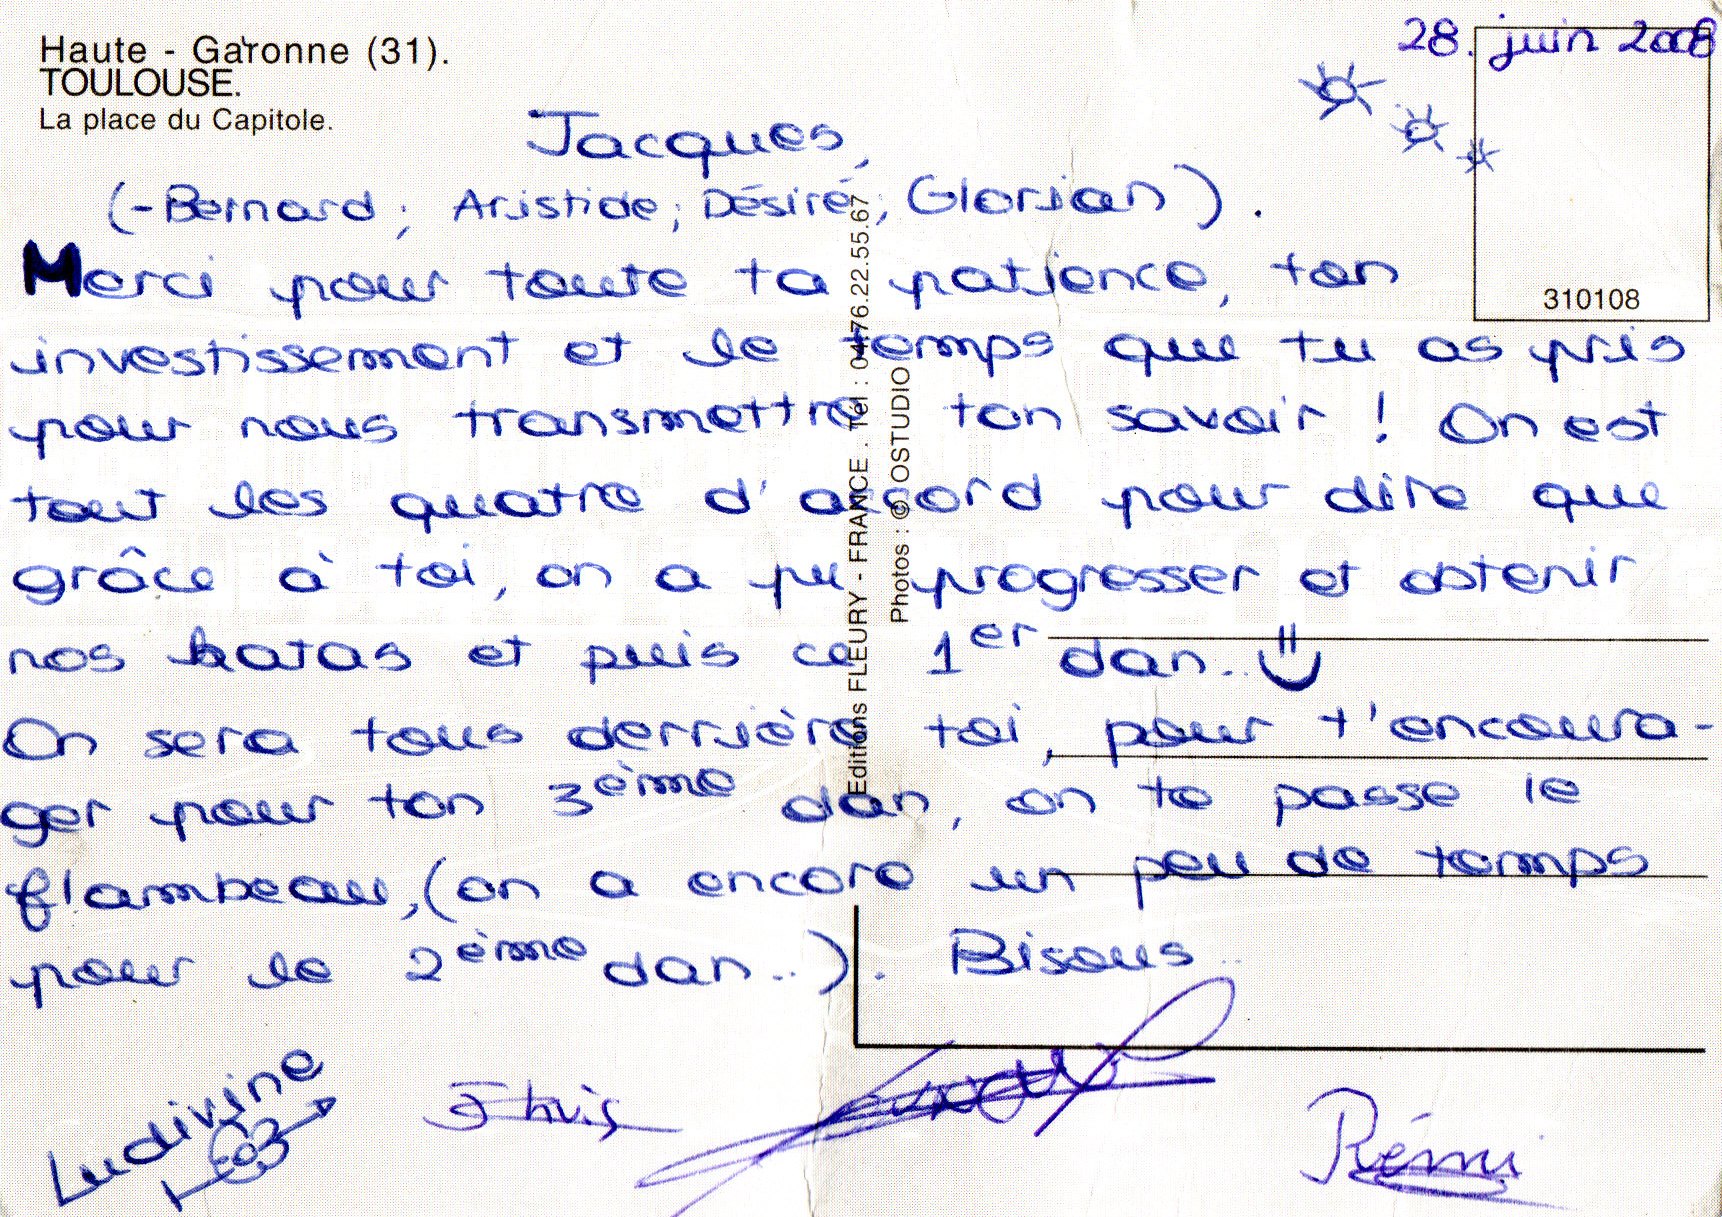 Haute - Garonne (31).
TOULOUSE.
La place du Capitole.
28. juin 2008
310108
Jacques,
(-Bernard ; Aristide ; Désiré ; Glorian ) .
Merci pour toute ta patience, ton
investissement et le temps que tu as pris
pour nous transmettre ton savoir ! On est
tout les quatre d'accord pour dire que
grâce à toi, on a pu progresser et obtenir
nos katas et puis ce 1er dan..
On sera tous derrière toi, pour t'encoura-
ger pour ton 3ème dan, on te passe le
flambeau, (on a encore un peu de temps
pour le 2ème dan..). Bisous..
Ludivine
Rémi
Editions FLEURY - FRANCE . Tél : 0476.22.55.67
Photos : © OSTUDIO